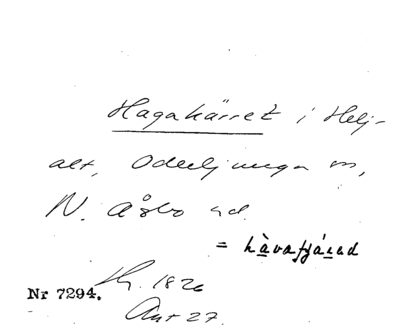 Hagakärret i Helj-
alt, Oderljunga sn,
N. Åsbo hd.
= hàvafjárad
Nr 7294.
1826
27.